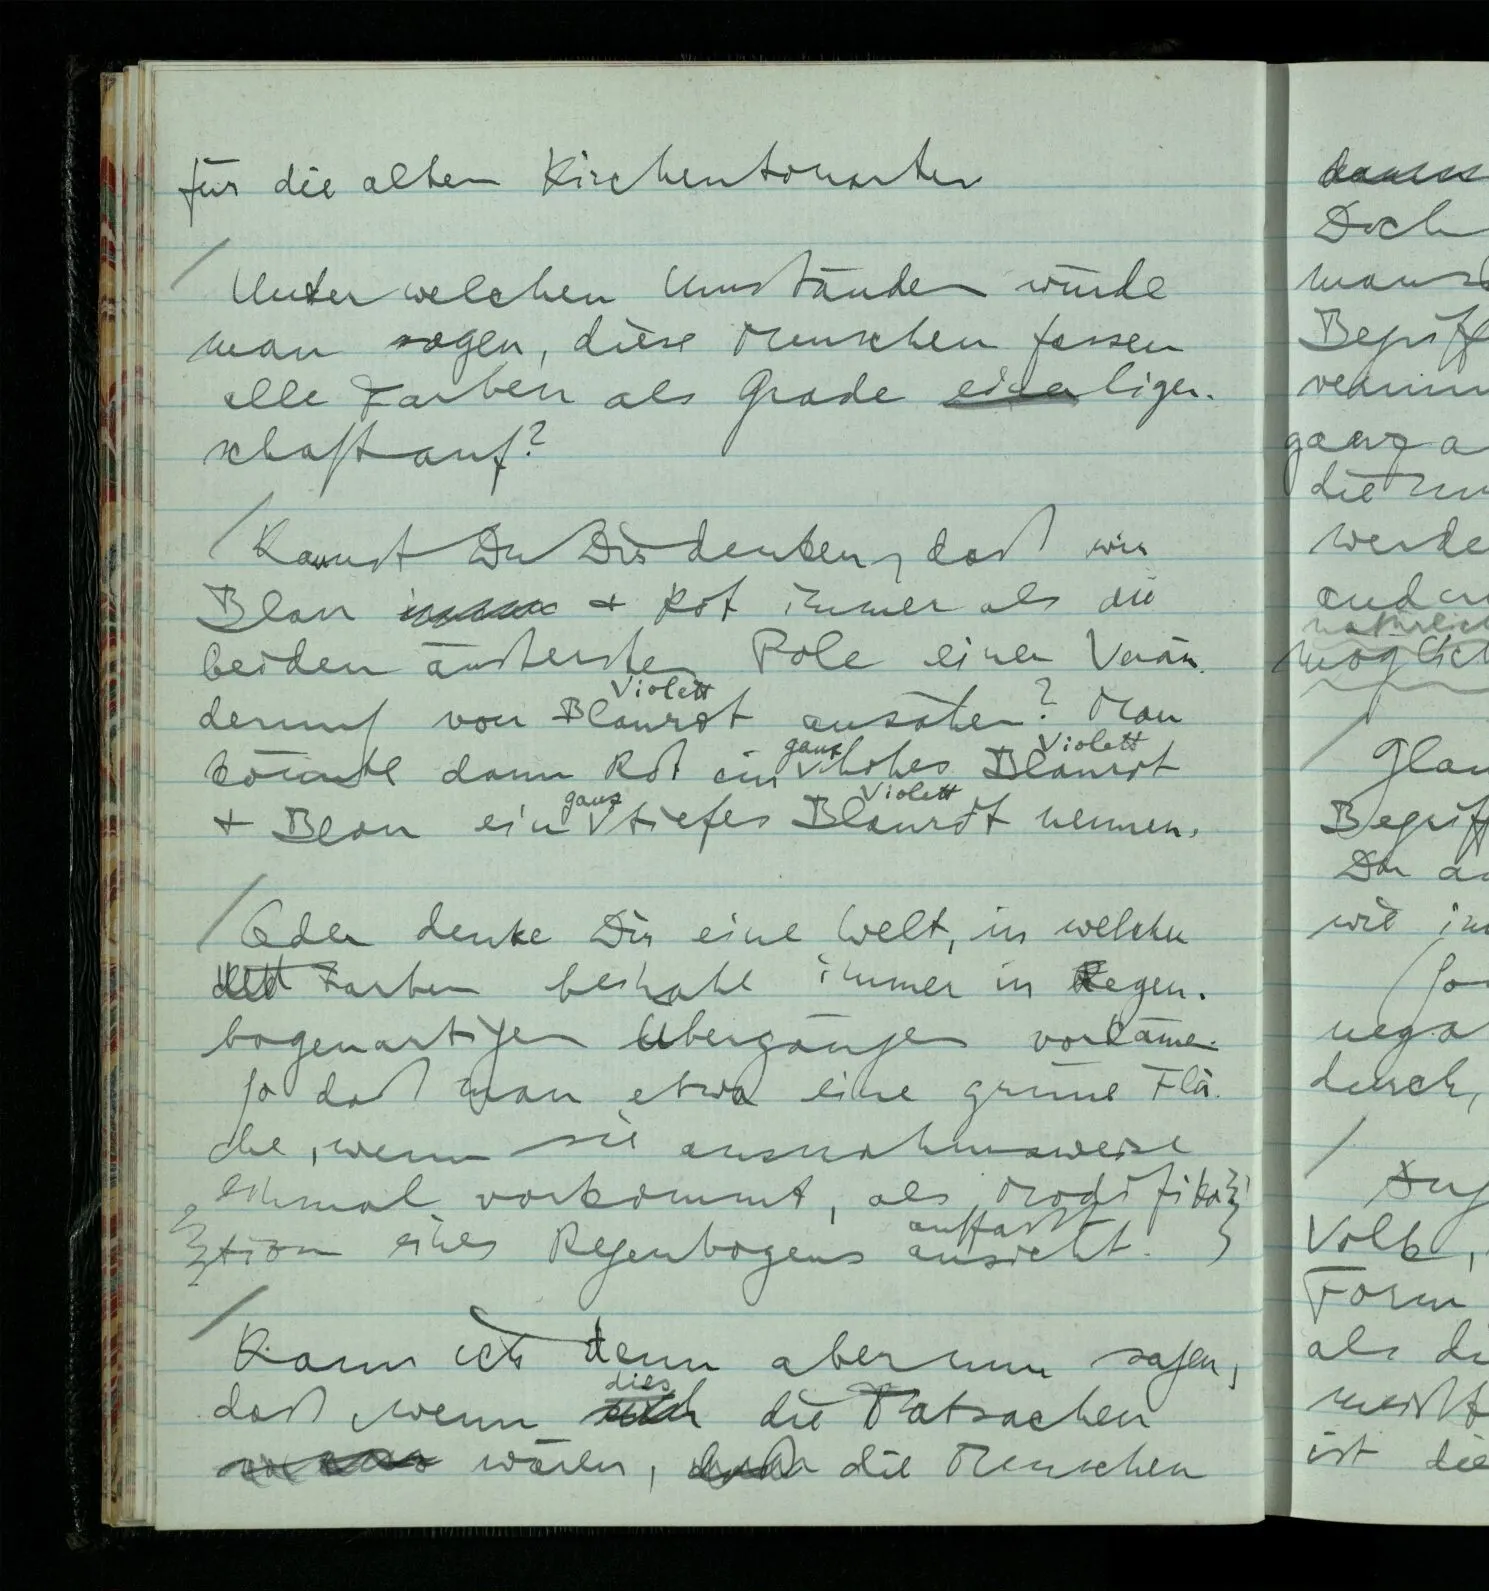 für die alten Kirchentonarten
/ Unter welchen Umständen würde
man sagen, diese Menschen fassen
alle Farben als Grade einer Eigen-
schaft auf?
/ Kannst Du Dir denken, daß wir
Blau & Rot immer als die
beiden äußersten Pole einer Verän-
Violett
derung von Blaurot ansähen? Man
ganz Violett
könnte dann Rot ein hohes Blaurot
ganz Violett
& Blau ein tiefes Blaurot nennen.
/ Oder denke Dir eine Welt, in welcher
Farben beinahe immer in Regen-
bogenartigen Übergängen vorkämen.
So daß man etwa eine grüne Flä-
che, wenn sie ausnahmsweise
einmal vorkommt, als Modifika-
auffaßt
tion eines Regenbogens ansieht.
/ Kann ich denn aber nun sagen,
dies
daß wenn die Tatsachen
wären, die Menschen
Doch
Begriff
ganz a
die
werde
möglich
/ Glau
Begriff
wie im
So
nega
durch,
/
Volk,
Form
als di
ist die